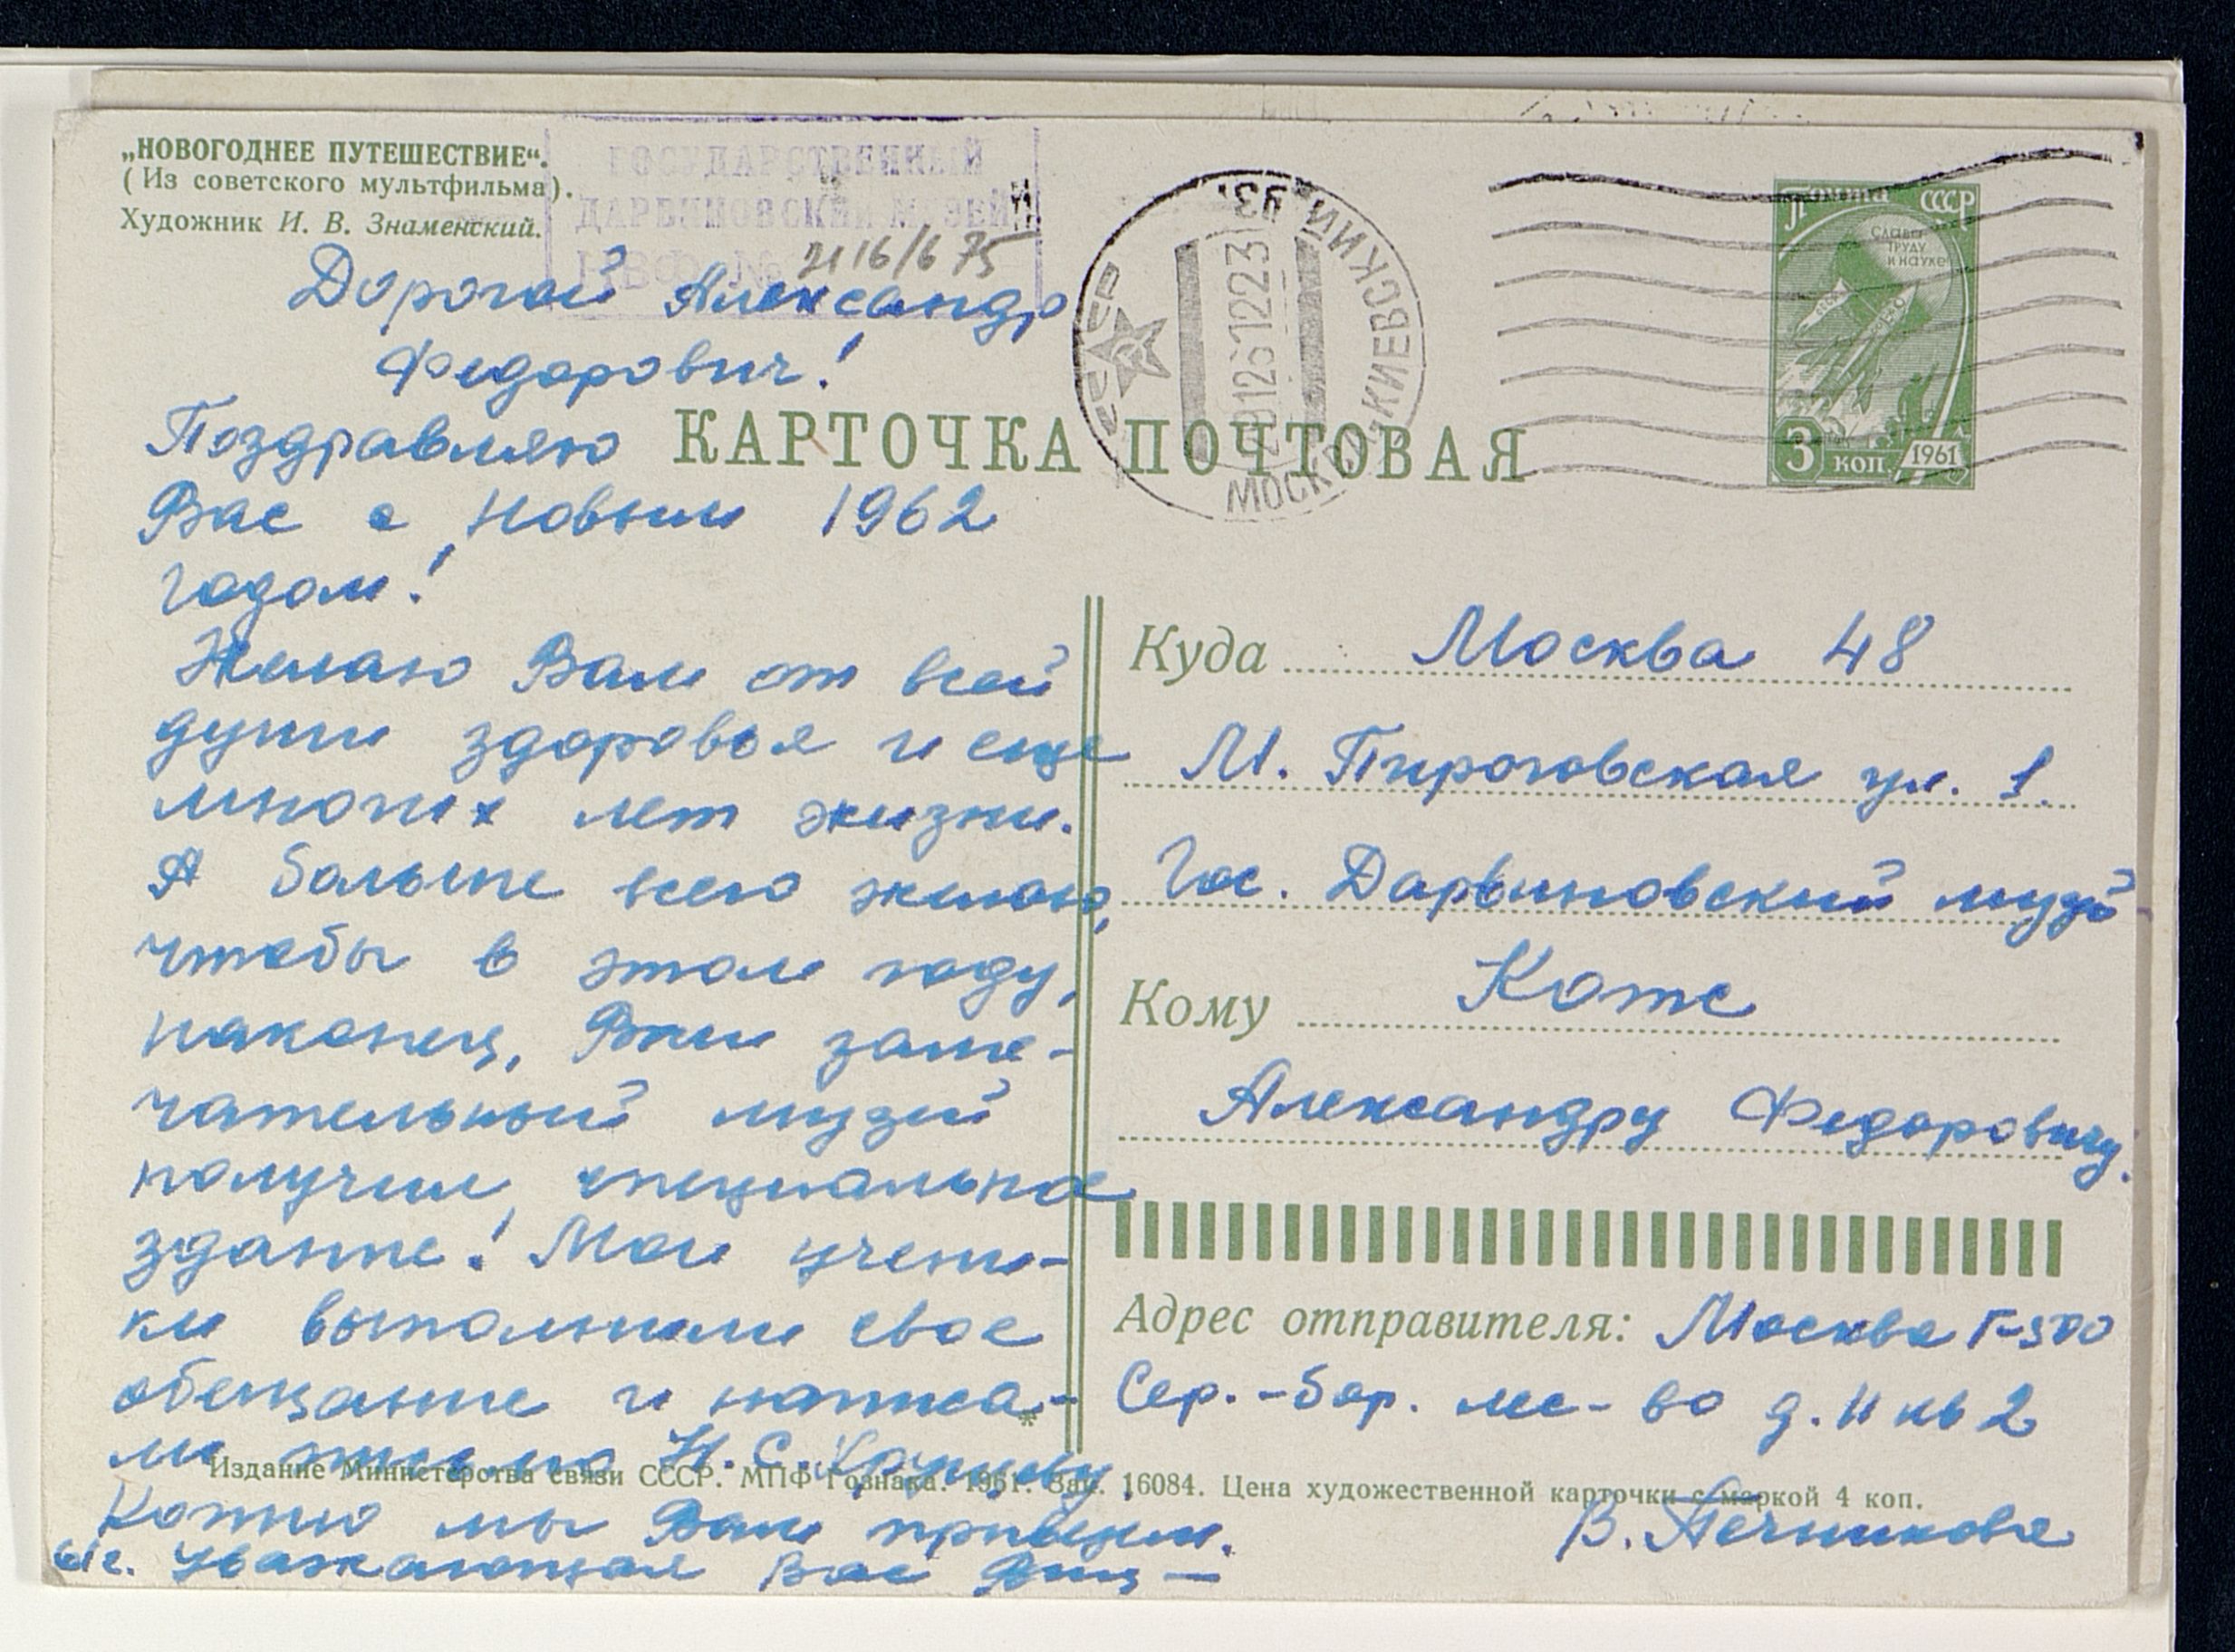 „НОВОГОДНЕЕ ПУТЕШЕСТВИЕ“.
(Из советского мультфильма).
Художник И. В. Знаменский.
ГОСУДАРСТВЕННЫЙ
ДАРВИНОВСКИЙ МУЗЕЙ
2116/675
Дорогой Александр
Федорович!
Поздравляю
Вас с Новым 1962
годом!
Желаю Вам от всей
души здоровья и еще
многих лет жизни.
А больше всего желаю,
чтобы в этом году,
наконец, Ваш заме-
чательный музей
получил специальное
здание! Мои учени-
ки выполнили свое
обещание и написа-
ли письмо Н.С.Хрущеву
Копию мы Вам привезем.
61г. Уважающая Вас
КАРТОЧКА ПОЧТОВАЯ
СССР
МОСКВА КИЕВСКИЙ
Почта СССР
СЛАВА
ТРУДУ
И НАУКЕ
3 коп. 1961
Куда Москва 48
М. Пироговская ул. 1.
Гос. Дарвиновский музей
Кому Котс
Александру Федоровичу.
Адрес отправителя: Москва Г-500
Сер.-Бор. лес-во д. 11 кв 2
Издание Министерства связи СССР. МПФ Гознака. 1961. Зак. 16084. Цена художественной карточки с маркой 4 коп.
В. Печникова